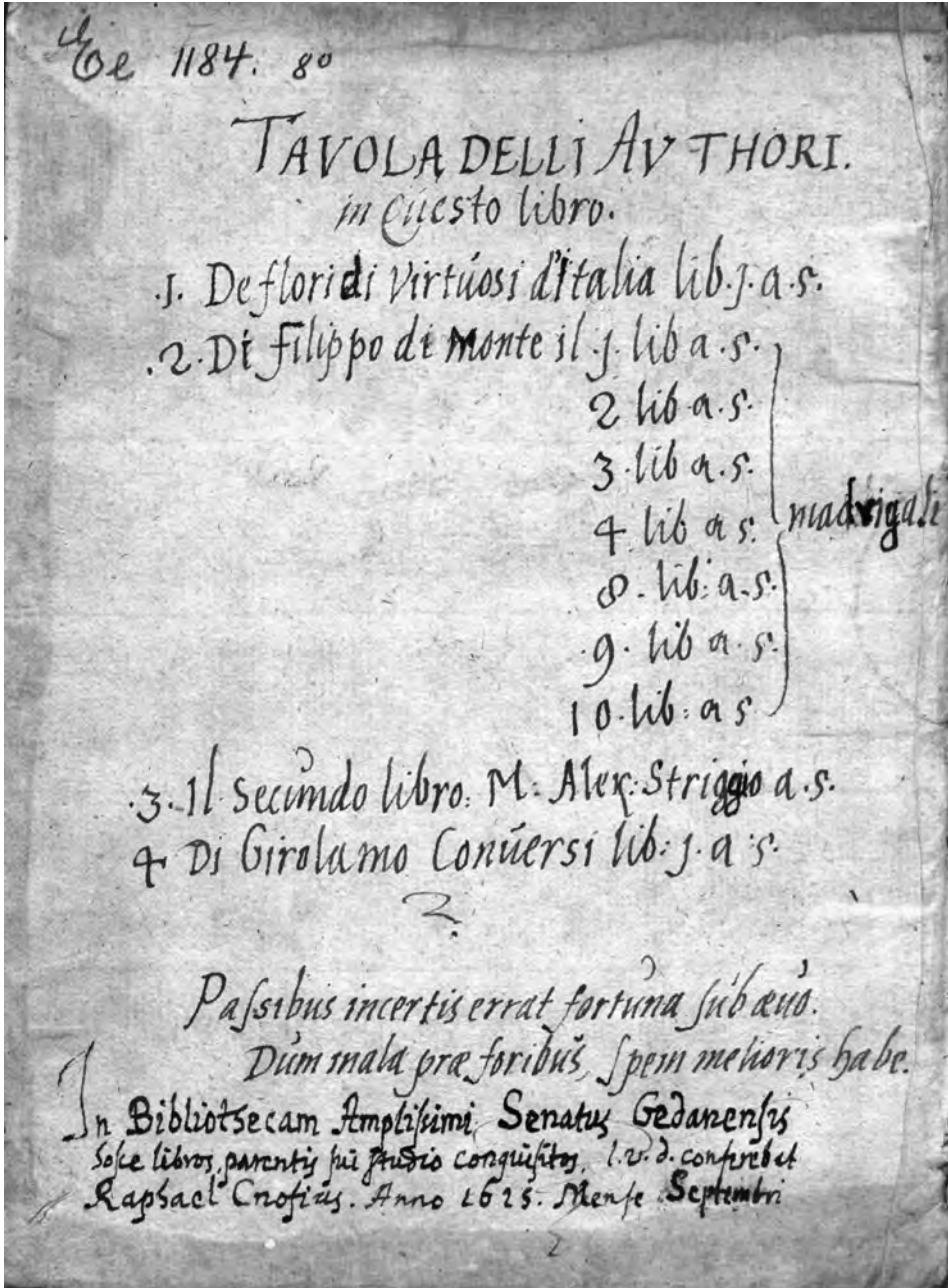 Ee 1184. 8º
TAVOLA DELLI AVTHORI.
in Questo libro.
.1. De floridi virtúosi d'Italia lib. j. a. 5.
.2. Di Filippo di Monte il .j. lib a. 5.
2 lib a. 5.
3. lib a. 5.
4 lib a 5.
8. lib: a. 5.
.9. lib a. 5.
10. lib: a 5
madrigali
.3. Il Secúndo libro: M: Alex: Striggio a. 5.
4 Di Girolamo Conúersi lib: j. a 5.
Paſsibus incertis errat fortúna ſúb æuo.
Dúm mala præ foribús, ſpem melioris habe.
In Bibliothecam Ampliſsimi Senatus Gedanenſis
hosce libros, parentis ſui ſtudio conquiſitos, l. v. d. conferebat
Raphael Cnofius. Anno 1615. Menſe Septembri